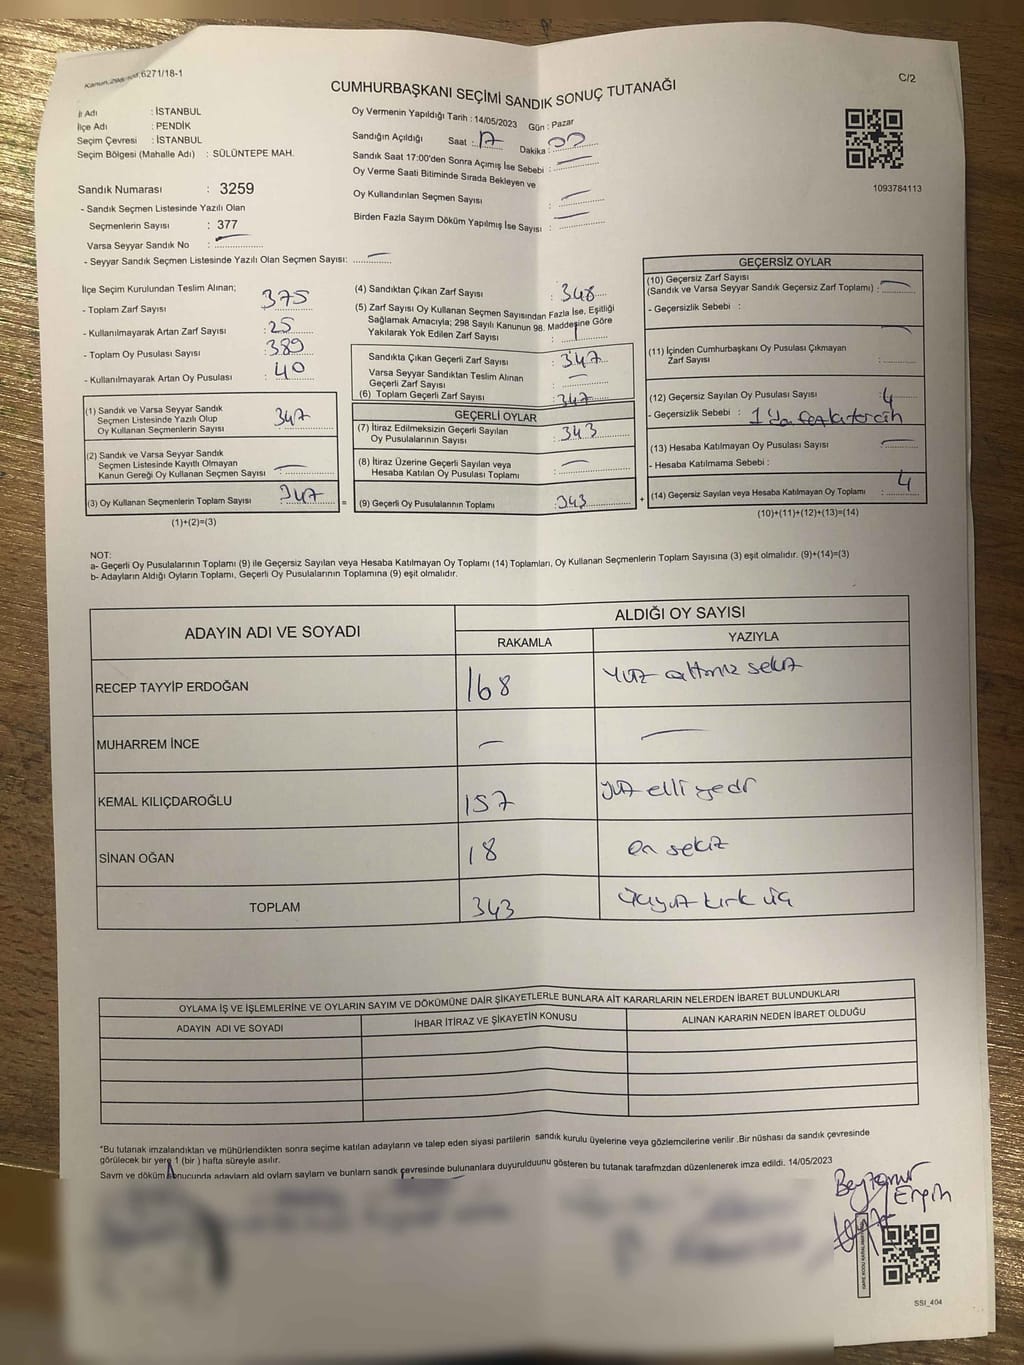 6271/18-1
CUMHURBAŞKANI SEÇİMİ SANDIK SONUÇ TUTANAĞI
C/2
İl Adı : İSTANBUL
İlçe Adı : PENDİK
Seçim Çevresi : İSTANBUL
Seçim Bölgesi (Mahalle Adı) : SÜLÜNTEPE MAH.
Sandık Numarası : 3259
- Sandık Seçmen Listesinde Yazılı Olan
Seçmenlerin Sayısı : 377
Varsa Seyyar Sandık No :
- Seyyar Sandık Seçmen Listesinde Yazılı Olan Seçmen Sayısı:
Oy Vermenin Yapıldığı Tarih : 14/05/2023 Gün : Pazar
Sandığın Açıldığı Saat : 17 Dakika :
Sandık Saat 17:00'den Sonra Açımış İse Sebebi :
Oy Verme Saati Bitiminde Sırada Bekleyen ve
Oy Kullandırılan Seçmen Sayısı :
Birden Fazla Sayım Döküm Yapılmış İse Sayısı :
1093784113
İlçe Seçim Kurulundan Teslim Alınan;
- Toplam Zarf Sayısı 375
- Kullanılmayarak Artan Zarf Sayısı : 25
- Toplam Oy Pusulası Sayısı : 389
- Kullanılmayarak Artan Oy Pusulası : 40
(1) Sandık ve Varsa Seyyar Sandık
Seçmen Listesinde Yazılı Olup
Oy Kullanan Seçmenlerin Sayısı 347
(2) Sandık ve Varsa Seyyar Sandık
Seçmen Listesinde Kayıtlı Olmayan
Kanun Gereği Oy Kullanan Seçmen Sayısı :
(3) Oy Kullanan Seçmenlerin Toplam Sayısı 347 =
(1)+(2)=(3)
(4) Sandıktan Çıkan Zarf Sayısı : 348
(5) Zarf Sayısı Oy Kullanan Seçmen Sayısından Fazla İse, Eşitliği
Sağlamak Amacıyla; 298 Sayılı Kanunun 98. Maddesine Göre
Yakılarak Yok Edilen Zarf Sayısı : 1
Sandıkta Çıkan Geçerli Zarf Sayısı : 347
Varsa Seyyar Sandıktan Teslim Alınan
Geçerli Zarf Sayısı :
(6) Toplam Geçerli Zarf Sayısı : 347
GEÇERLİ OYLAR
(7) İtiraz Edilmeksizin Geçerli Sayılan
Oy Pusulalarının Sayısı : 343
(8) İtiraz Üzerine Geçerli Sayılan veya
Hesaba Katılan Oy Pusulası Toplamı :
(9) Geçerli Oy Pusulalarının Toplamı : 343 +
GEÇERSİZ OYLAR
(10) Geçersiz Zarf Sayısı
(Sandık ve Varsa Seyyar Sandık Geçersiz Zarf Toplamı) :
- Geçersizlik Sebebi :
(11) İçinden Cumhurbaşkanı Oy Pusulası Çıkmayan
Zarf Sayısı :
(12) Geçersiz Sayılan Oy Pusulası Sayısı : 4
- Geçersizlik Sebebi : 1'den fazla tercih
(13) Hesaba Katılmayan Oy Pusulası Sayısı :
- Hesaba Katılmama Sebebi :
(14) Geçersiz Sayılan veya Hesaba Katılmayan Oy Toplamı : 4
(10)+(11)+(12)+(13)=(14)
NOT:
a- Geçerli Oy Pusulalarının Toplamı (9) ile Geçersiz Sayılan veya Hesaba Katılmayan Oy Toplamı (14) Toplamları, Oy Kullanan Seçmenlerin Toplam Sayısına (3) eşit olmalıdır. (9)+(14)=(3)
b- Adayların Aldığı Oyların Toplamı, Geçerli Oy Pusulalarının Toplamına (9) eşit olmalıdır.
ADAYIN ADI VE SOYADI ALDIĞI OY SAYISI
RAKAMLA YAZIYLA
RECEP TAYYİP ERDOĞAN 168 yüz altmış sekiz
MUHARREM İNCE — —
KEMAL KILIÇDAROĞLU 157 yüz elli yedi
SİNAN OĞAN 18 on sekiz
TOPLAM 343 üçyüz kırk üç
OYLAMA İŞ VE İŞLEMLERİNE VE OYLARIN SAYIM VE DÖKÜMÜNE DAİR ŞİKAYETLERLE BUNLARA AİT KARARLARIN NELERDEN İBARET BULUNDUKLARI
ADAYIN ADI VE SOYADI İHBAR İTİRAZ VE ŞİKAYETİN KONUSU ALINAN KARARIN NEDEN İBARET OLDUĞU
*Bu tutanak imzalandıktan ve mühürlendikten sonra seçime katılan adayların ve talep eden siyasi partilerin sandık kurulu üyelerine veya gözlemcilerine verilir .Bir nüshası da sandık çevresinde
görülecek bir yere 1 (bir ) hafta süreyle asılır.
Sayım ve döküm sonucunda adayların ald oyların sayların ve bunların sandk çevresinde bulunanlara duyurulduunu gösteren bu tutanak tarafmzdan düzenlenerek imza edildi. 14/05/2023
Beyzanur
Ergin
SSI_404